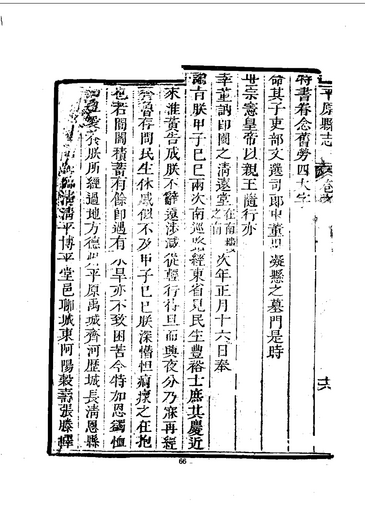 平原縣志
特書眷念舊勞四大字
命其子吏部文選司郎中董思凝縣之墓門是時
世宗憲皇帝以親王隨行亦
幸董訥郎園之清遠堂在南樓之南次年正月十六日奉
諭吉朕甲子巳巳兩次南巡經東省見民生豐裕士庶其慶近
來淮黃告成朕不辭遠涉減從輕行待旦而興夜分乃寐再經
齊魯存問民生休戚似不及甲子巳巳朕深惜怛痌瘝之在抱
也若閭閻積蓄有餘卽遇有小旱亦不致困苦今特加恩蠲恤
朕所經過地方德州平原禹城齊河歷城長清恩縣
清平博平堂邑聊城東阿陽穀壽張滕嶧
66